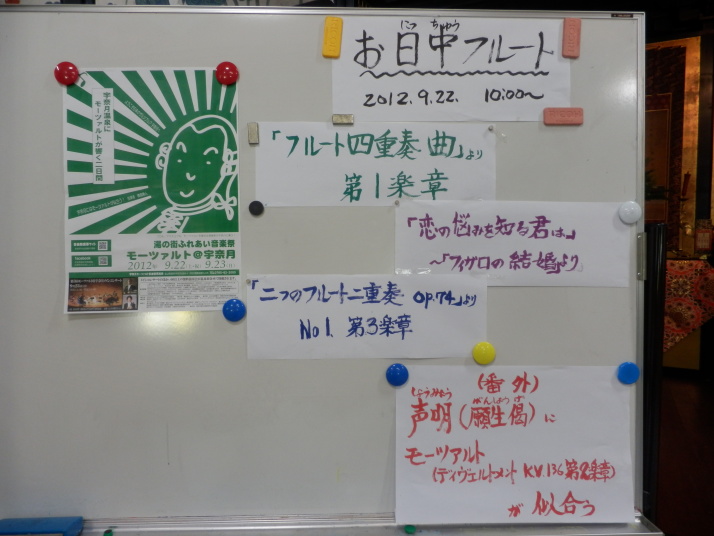 宇奈月温泉に
モーツァルトが響く二日間
湯の街ふれあい音楽祭
モーツァルト@宇奈月
2012年 9.22(土) 9.23(日)
にっ ちゅう
お日中フルート
2012.9.22. 10:00〜
「フルート四重奏曲」より
第1楽章
「恋の悩みを知る君は」
〜「フィガロの結婚」より
「二つのフルート二重奏 op.74」より
No1. 第3楽章
(番外)
しょうみょう がんしょうげ
声明(願生偈)に
モーツァルト
(ディヴェルトメント K.V.136 第2楽章)
が 似合う